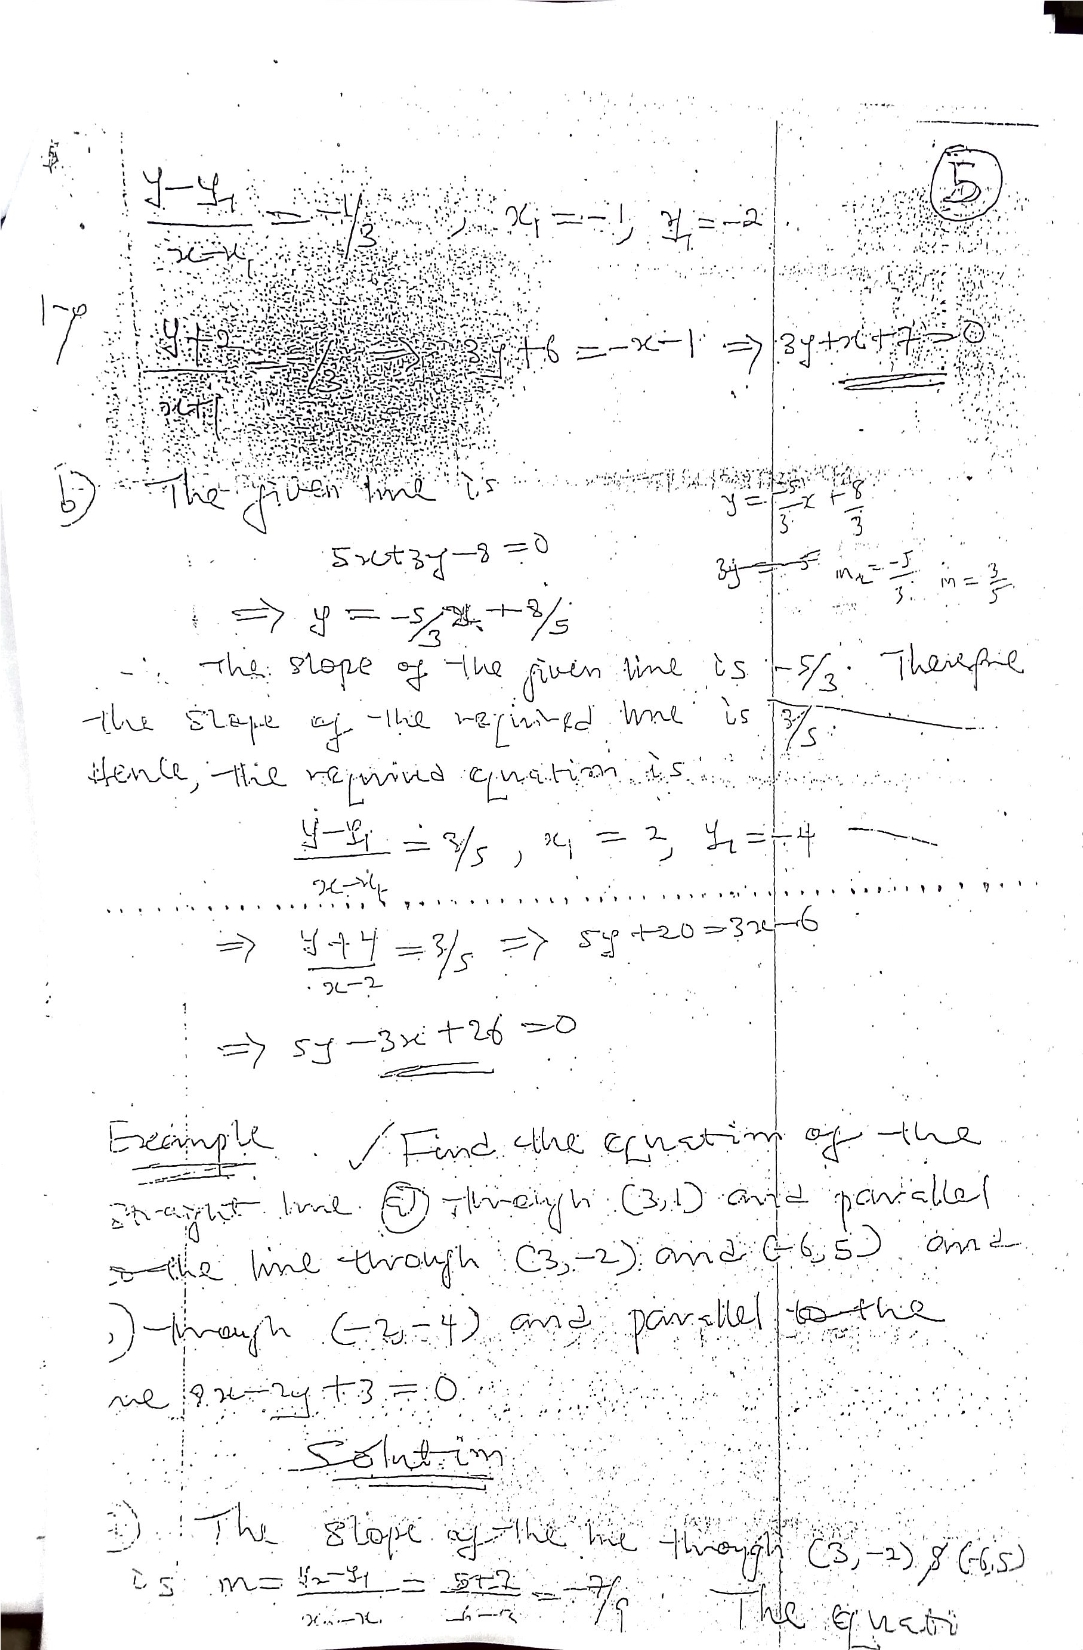 5
y-y₁/x-x₁ = -1/3 , x₁ = -1, y₁ = -2
y+2/x+1 = -1/3 ⇒ 3y+6 = -x-1 ⇒ 3y+x+7=0
b) The given line is
y = -5/3 x + 8/3
5x+3y-8=0
3y = -5 m₂ = -5/3. m = 3/5
⇒ y = -5/3 x + 8/5
∴ The slope of the given line is -5/3. Therefore
the slope of the required line is 3/5.
Hence, the required equation is
y-y₁/x-x₁ = 3/5 , x₁ = 2, y₁ = -4
⇒ y+4/x-2 = 3/5 ⇒ 5y+20=3x-6
⇒ 5y-3x+26=0
Example ✓ Find the equation of the
straight line a) through (3,1) and parallel
to the line through (3,-2) and (-6,5) and
) through (-2,-4) and parallel to the
ne 8x-2y+3=0
Solution
The slope of the line through (3,-2) & (-6,5)
is m = y₂-y₁/x₂-x₁ = 5+2 = -7/9 The equati